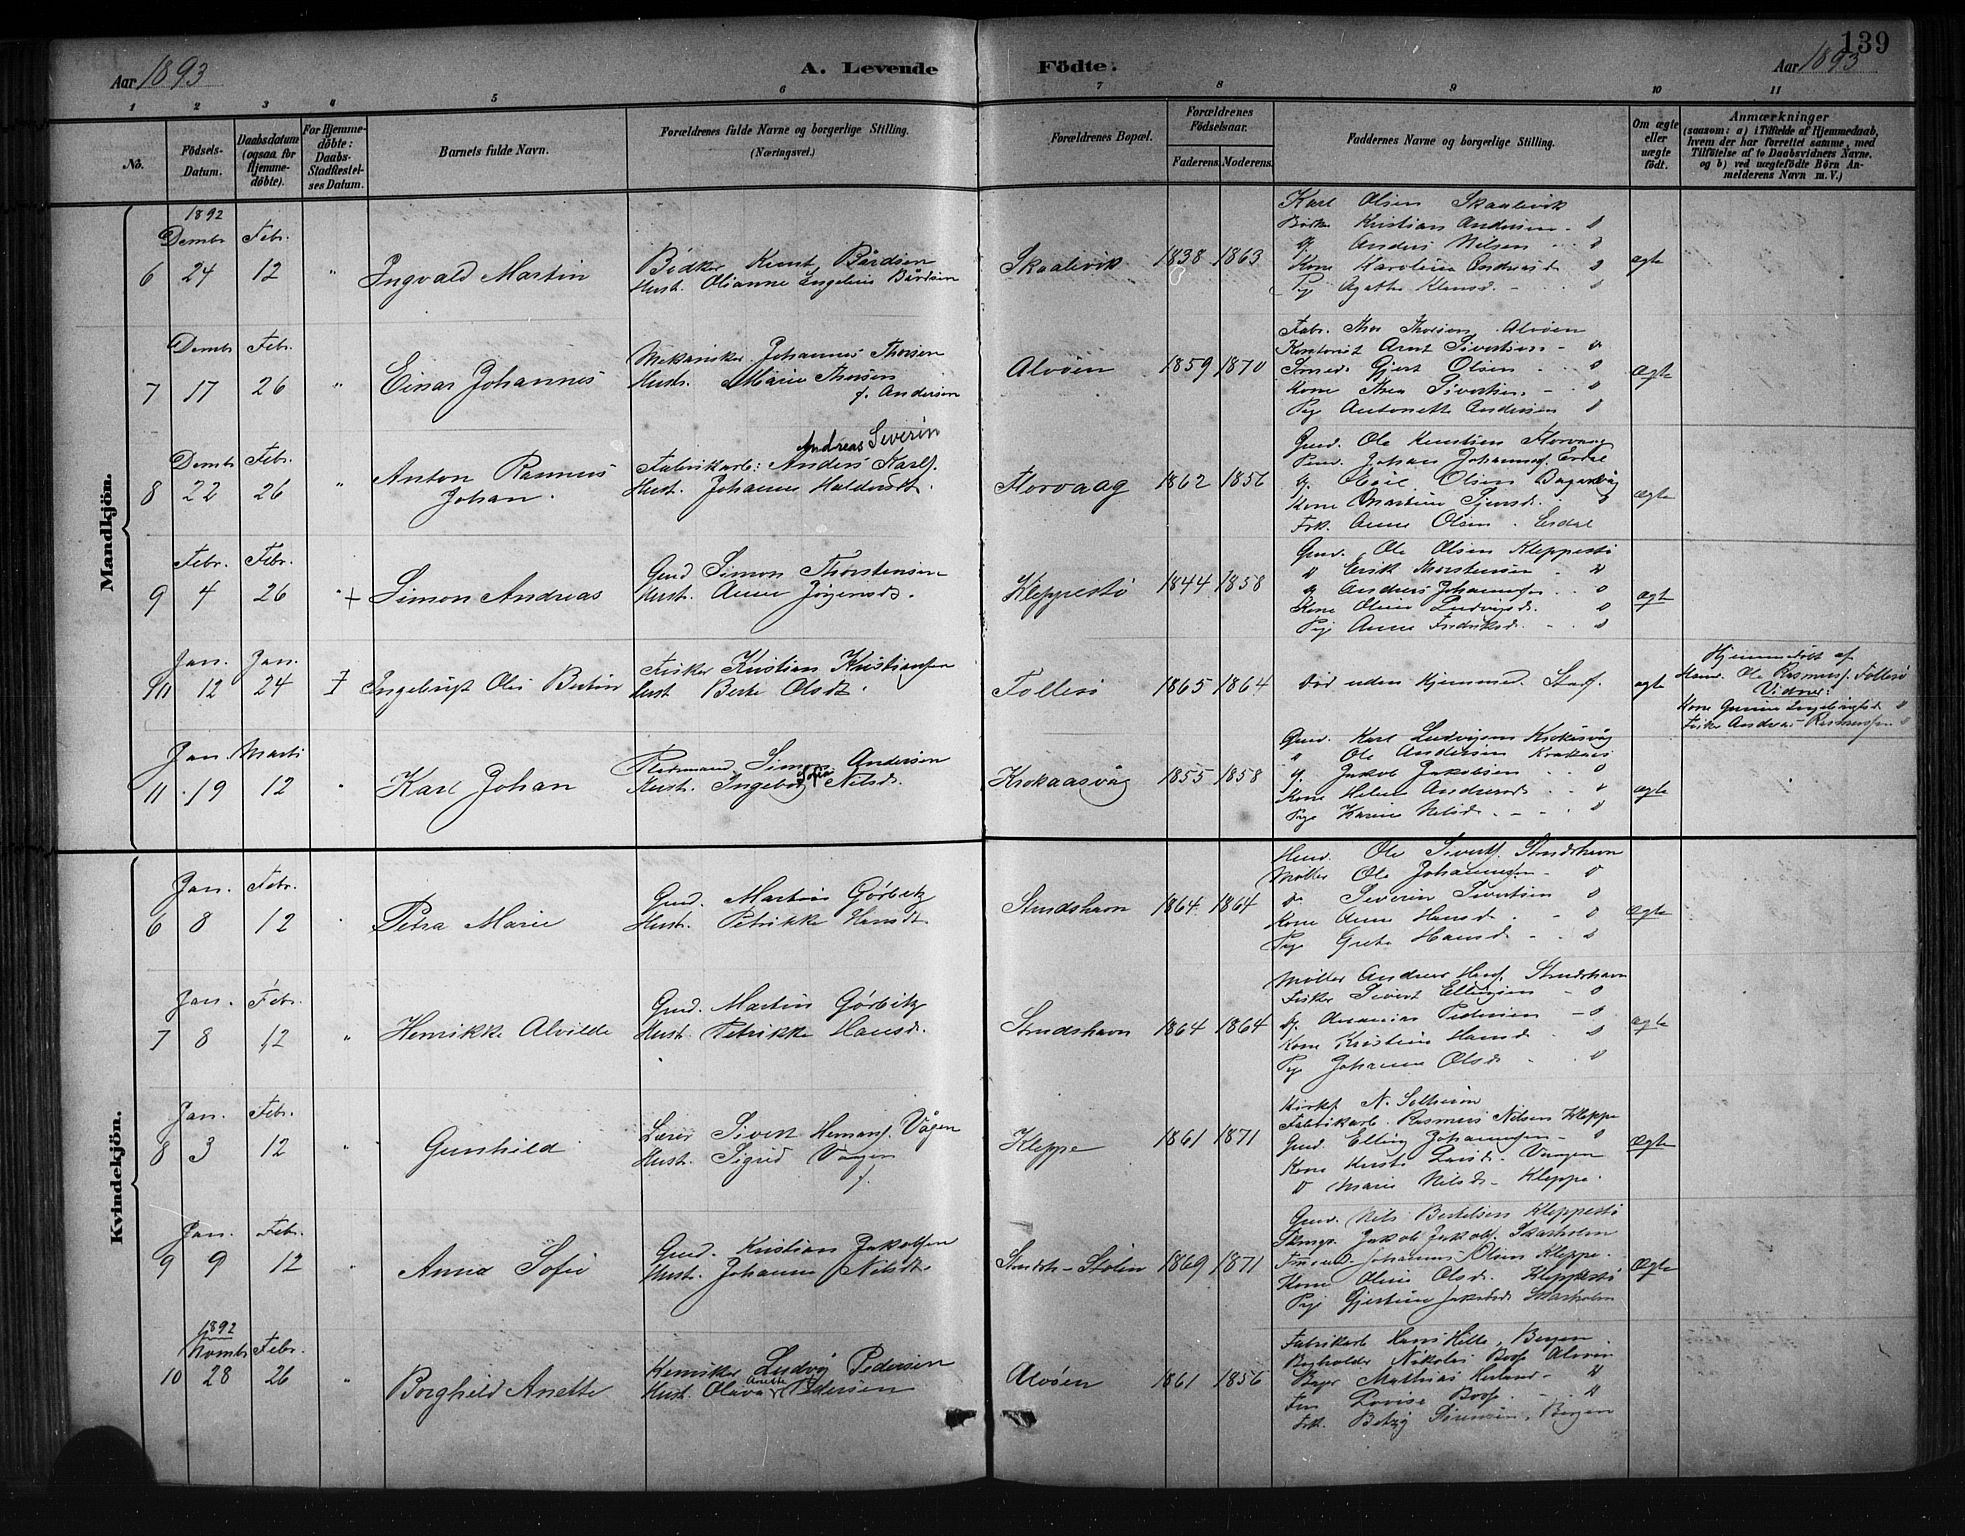 139
Aar 1893
A. Levende Födte.
Aar 1893
1 2 3 4 5 6 7 8 9 10 11
No.
Födsels-Datum.
Daabsdatum (ogsaa for Hjemmedöbte).
For Hjemmedöbte: Daabs-Stadfestelses Datum.
Barnets fulde Navn.
Forældrenes fulde Navne og borgerlige Stilling.
(Næringsvei.)
Forældrenes Bopæl.
Forældrenes Födselsaar.
Faderens. Moderens.
Faddernes Navne og borgerlige Stilling.
Om ægte eller uægte födt.
Anmærkninger
(saasom: a) i Tilfælde af Hjemmedaab,
hvem der har forrettet samme, med
Tilföielse af to Daabsvidners Navne.
og b) ved uægtefödte Börn An-
melderens Navn m. V.)
Mandkjön.
1892
Dembr Febr.
6 24 12 " Ingvald Martin
Bödker Knut Bårdsen
Hust. Olianne Ingeline Bårdsen
Skaalevik 1838 1863
Karl Olsen Skaalevik
Kristian Andersen
Anders Nilsen
Kone Karoline Andreasd
Pige Agathe Klausd.
ægte
Dembr Febr.
7 17 26 " Einar Johannes
Mekaniker Johannes Thorsen
Hust. Marie Thorsen
f. Andersen
Alvöen 1859 1870
Fabr. Thor Thorsen Alvöen
Kontorist Arnt Sivertsen
Gjert Olsen
Kone Thea Sivertsen
Pige Antonette Andersen
ægte
Dembr Febr.
8 22 26 " Anton Rasmus
Johan.
Andreas Severin
Fabrikarb: Anders Karlf.
Hust. Johanne Haldorsdt.
Florvaag 1862 1856
Gmd. Ole Knutsen Florvaag
Johan Johannesf. Erdal
Olsen
Kone Martine
Frk. Anne Olsen Erdal
ægte
Febr. Febr.
9 4 26 " + Simon Andreas
Gmd Simon Thorstensen
Hust. Anne Jörgensd.
Kleppestö 1844 1858
Gmd. Ole Olsen Kleppestö
" Erik Thorstensen "
Anders Johannesen
Kone Oline Ludvigsd.
Pige Anne Fredriksd.
ægte
Jan. Jan.
10 12 24 Ingebrigt Ole Bertin
Fisker Kristian Kristiansen
Hust Berte Olsdt.
Follesö 1865 1864
Död uden Hjemmed. Stadf.
ægte
Hjemmedöbt af
Ole Rasmusf. Follesö
Vidner:
Kone
Fisker Andreas Rasmussen
Jan. Marts
11 19 12 " Karl Johan
Simon Andersen
Hust. Ingeborg Sofie Nilsd.
Krokaasvåg 1855 1858
Gmd. Karl Ludvigsen Krokasvåg
" Ole Andersen
Jakob Jakobsen
Kone Helene
Pige Karine Nilsd.
ægte
Kvindekjön.
Jan. Febr.
6 8 12 " Petra Marie
Gmd. Martin Görbitz
Hust. Petrikke Hansdt
Strudshavn 1864 1864
Ole Sivertf. Strudshavn
Möller Ole Johannesen
do Severin Sivertsen
Kone Anne Hansd.
Pige Grete Hansd
ægte
Jan. Febr.
7 8 12 " Henrikke Alvilde
Gmd. Martin Görbitz
Hust. Petrikke Hansd.
Strudshavn 1864 1864
Möller Andreas Hansf. Strudshavn
Fisker Sivert Ellingsen
Ananias Pedersen
Kone Kristine Hansd
Pige Johanne Olsd
ægte
Jan. Febr.
8 3 12 " Gunhild
Lærer Sivert Hermansf. Vågen
Hust. Sigrid Vågen
f.
Kleppe 1861 1871
Kirkes. N. Soltveon
Fabrikarb. Rasmus Nilsen Kleppe
Gmd. Elling Johannesen
Kone Kirsti Larsd. Vangen
" Marie Nilsd. Kleppe.
ægte
Jan. Febr.
9 9 12 " Anna Sofie
Gmd. Kristian Jakobsen
Hust. Johanne Nilsdt.
Strudsh-Stölen 1869 1871
Gmd. Nils Bertelsen Kleppestö
Jakob Jakobf. Skarholm
Johannes Olsen Kleppe.
Kone Oline Olsd. Kleppestö
Pige Gjertine Jakobsd Skarholm
ægte
1892
Novmbr Febr.
10 28 26 " Borghild Anette
Kemiker Ludvig Pedersen
Hust. Olava Anette Pedersen
Alvöen 1861 1856
Fabrikarb Hans Hille Bergen
Bogholder Nikolai Boop Alvöen
Mathias
Lovise Boop
Frk. Betzy Sörensen, Bergen